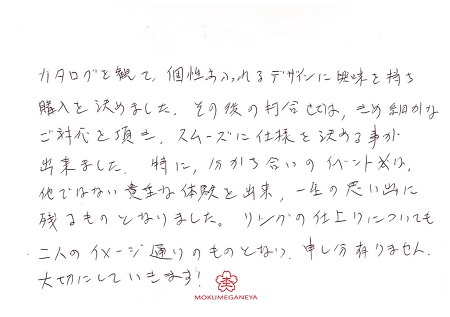 カタログを観て、個性あふれるデザインに興味を持ち
購入を決めました。その後の打合せでは、きめ細かな
ご対応を頂き、スムーズに仕様を決める事が
出来ました。特に、分かち合いのイベントは、
他ではない貴重な体験を出来、一生の思い出に
残るものとなりました。リングの仕上りについても
二人のイメージ通りのものとなり、申し分有りません。
大切にしていきます!
MOKUMEGANEYA